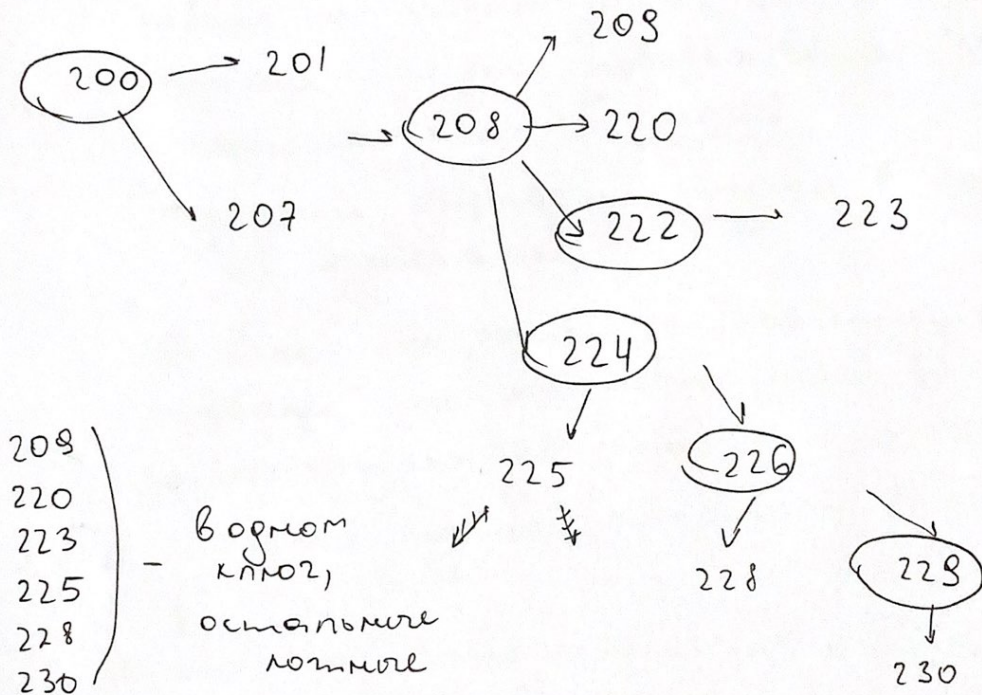 200
201
207
208
209
220
222
223
224
225
226
228
229
230
209
220
223
225
228
230
– в одном
ключ,
остальные
ложные